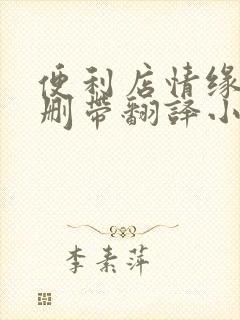 便利店情缘
删带翻译小
李素萍